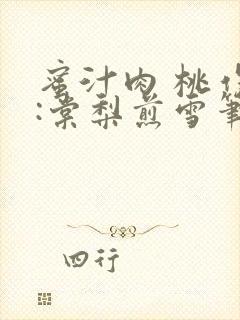 蜜汁肉桃
:棠梨煎雪筆
四行